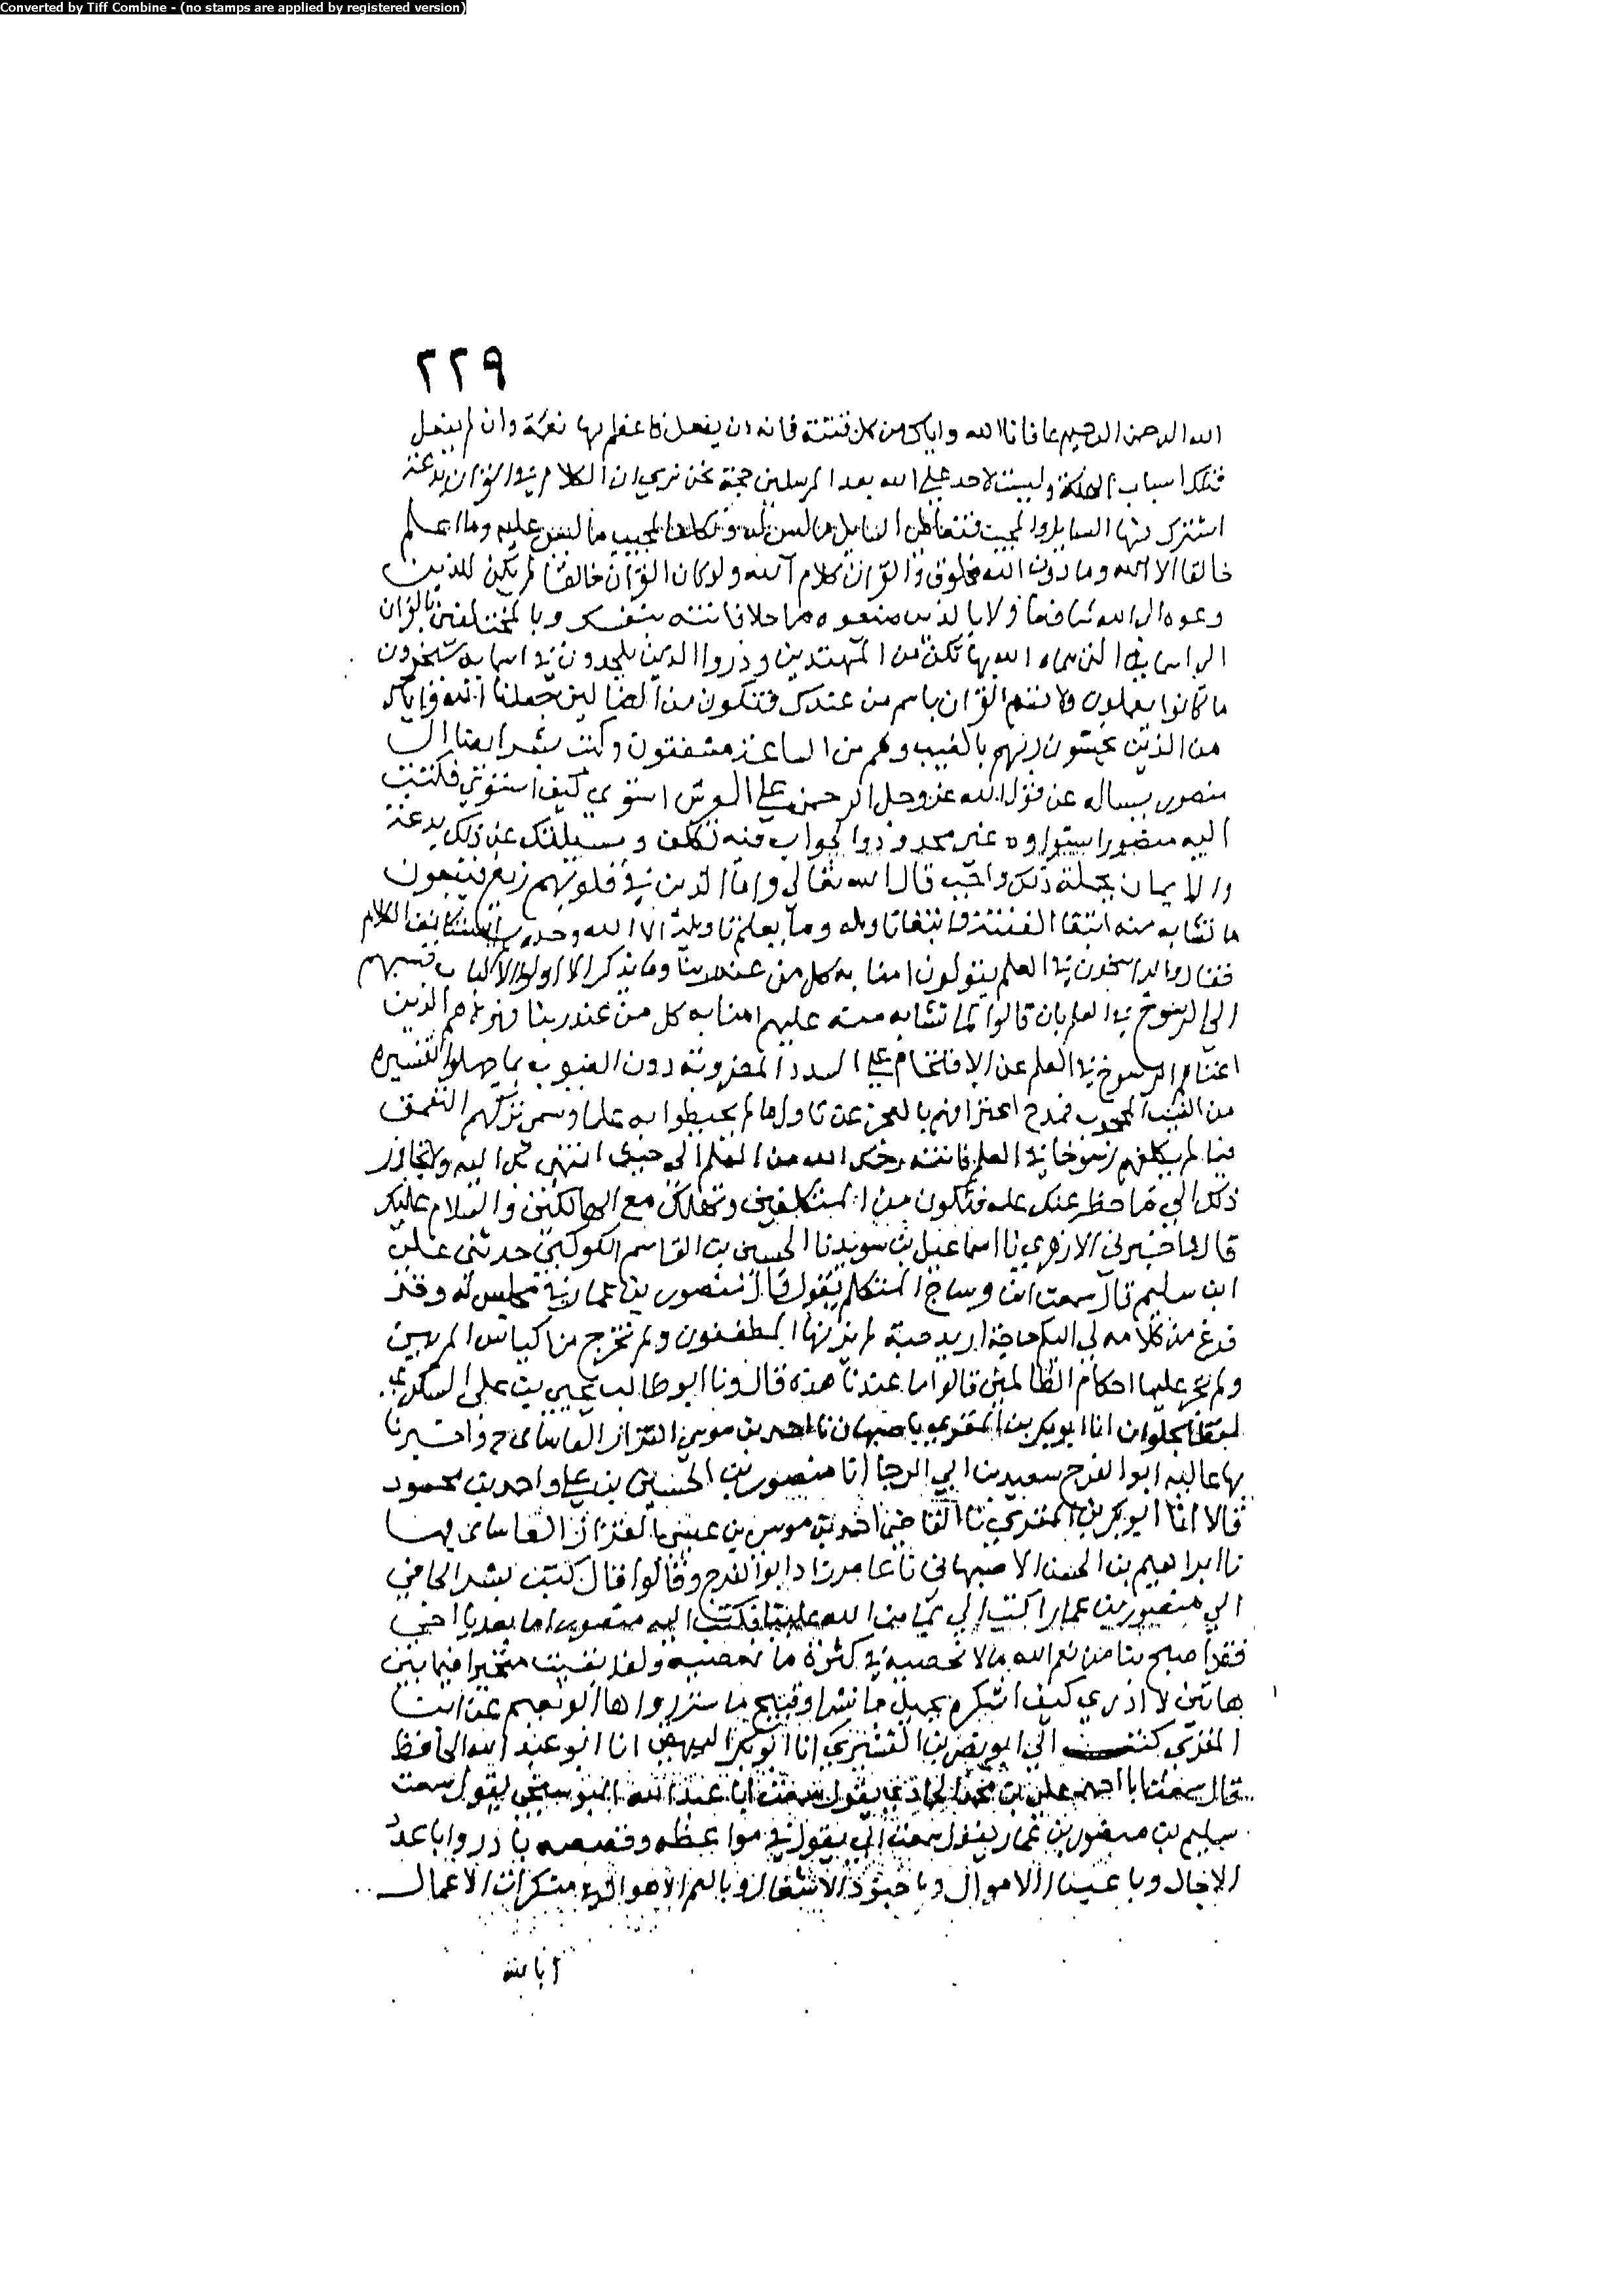 Converted by Tiff Combine - (no stamps are applied by registered version)
٢٢٩
الله الرحمن الرحيم عافانا الله واياك من كل فتنة فانه ان يفعل فاعظم بها نعمة وان لم يفعل
فتلك اسباب الهلكة وليست لاحد على الله بعد المرسلين حجة نحن نرى ان الكلام في القران بدعة
اشترك فيها السايل والمجيب فتعاطى السايل ما ليس له وتكلف المجيب ما ليس عليه وما اعلم
خالقا الا الله وما دون الله مخلوق والقران كلام الله ولو كان القران خالقا لم يكن للذين
وعوه الى الله شافعا ولا بالذين ضيعوه ماحلا فانته بنفسك وبالمختلفين بالقران
الى اسمايه التي سماه الله بها تكن من المهتدين وذروا الذين يلحدون في اسمايه سيجزون
ما كانوا يعملون ولا تسم القران باسم من عندك فتكون من الضالين جعلنا الله واياك
من الذين يخشون ربهم بالغيب وهم من الساعة مشفقون وكتب بشر ايضا الى
منصور يساله عن قول الله عز وجل الرحمن على العرش استوى كيف استوى فكتب
اليه منصور استواوه غير محدود والجواب فيه تكلف ومسيلتك عن ذلك بدعة
والايمان بجملة ذلك واجب قال الله تعالى واما الذين في قلوبهم زيغ فيتبعون
ما تشابه منه ابتغا الفتنة وابتغا تاويله وما يعلم تاويله الا الله وحده استانف الكلام
فقال والراسخون في العلم يقولون امنا به كل من عند ربنا وما يذكر الا اولوا الالباب فنسبهم
الى الرسوخ في العلم بان قالوا لما تشابه منه عليهم امنا به كل من عند ربنا فهولاء هم الذين
اغناهم الرسوخ في العلم عن الاقتحام على السدد المضروبة دون الغيوب بما جهلوا تفسيره
من الغيب المحجوب فمدح اعترافهم بالعجز عن تاول ما لم يحيطوا به علما وسمى تركهم التعمق
فيما لم يكلفهم رسوخا في العلم فانته رحمك الله من العلم الى حيث انتهى بك اليه ولا تجاوز
ذلك الى ما حظر عنك علمه فتكون من المتكلفين وتهلك مع الهالكين والسلام عليك
قال واخبرني الازهري نا اسماعيل بن سويد نا الحسين بن القاسم الكوكبي حدثني علي
ابن سليم قال سمعت ابن وساج المتكلم يقول قال منصور بن عمار في مجلس له وقد
فرغ من كلامه لي اليكم حاجة اريد حبة لم يزنها المطففون ولم تخرج من اكياس المربين
ولم تجر عليها احكام الظالمين قالوا ما عندنا هذه قال ونا ابو طالب يحيى بن علي السكري
لفظا بحلوان انا ابو بكر بن المقري باصبهان نا احمد بن موسى القزاز ح واخبرنا
بها عاليه ابو الفرج سعيد بن ابي الرجا انا منصور بن الحسين بن علي واحمد بن محمود
قالا انا ابو بكر بن المقري نا القاضي احمد بن موسى بن عيسى القزاز بها
نا ابراهيم بن الحسن الاصبهاني نا عامر زاد ابو الفرج وقالوا قال كتب بشر الحافي
الى منصور بن عمار اكتب الي بما من الله علينا فكتب اليه منصور اما بعد يا اخي
فقد اصبح بنا من نعم الله ما لا نحصيه في كثرة ما نعصيه ولقد بقيت متحيرا فيما بين
هاتين لا ادري كيف اشكره بجميل ما نشر او قبيح ما ستر رواها ابو نعيم عن ابن
المقري كتب الي ابو نصر بن القشيري انا ابو بكر البيهقي انا ابو عبد الله الحافظ
قال سمعت ابا احمد علي بن محمد يقول سمعت ابا عبد الله البوسنجي يقول سمعت
سليم بن منصور بن عمار يقول سمعت ابي يقول في مواعظه وقصصه باذروا باعد
الاجال ويا عبيد الاموال ويا الاشغال ويا الاهوال مبتكرات الاعمال